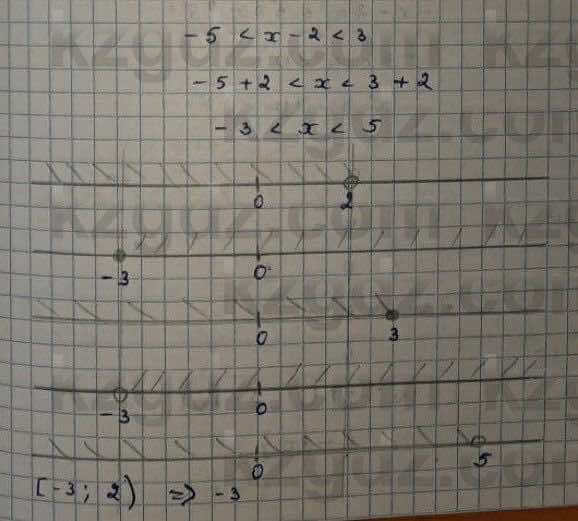 -5 < x - 2 < 3
-5 + 2 < x < 3 + 2
-3 < x < 5
0 2
-3 0
0 3
-3 0
0 5
[-3; 2) => -3
kzgdz.com